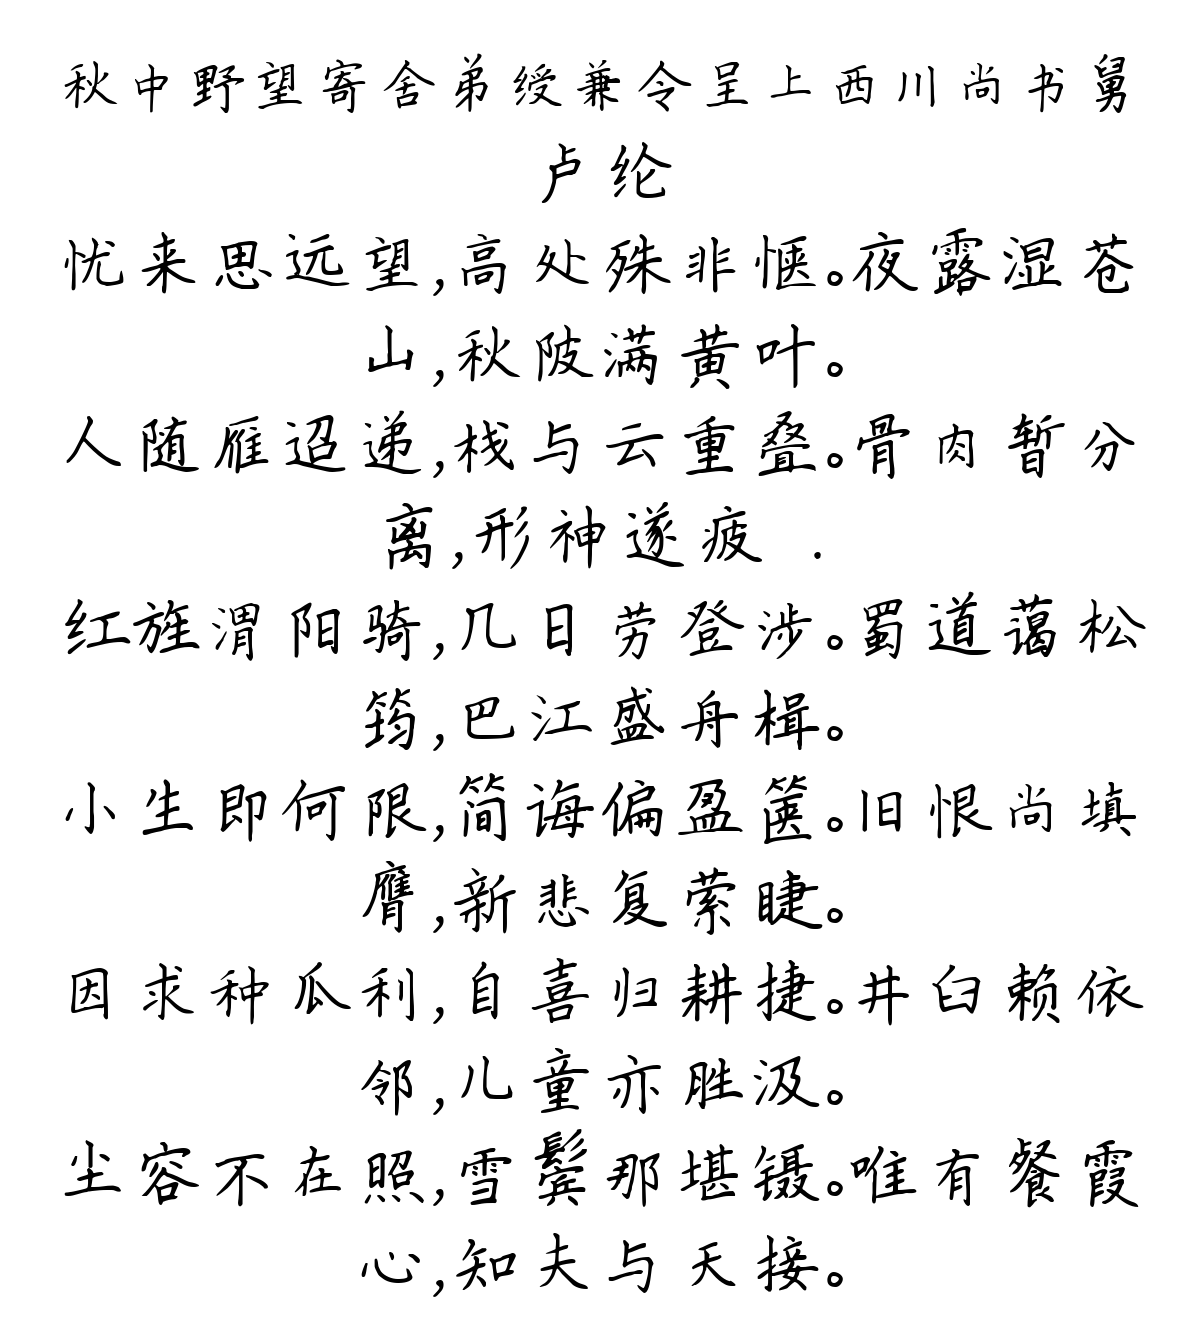 秋中野望寄舍弟绶兼令呈上西川尚书舅
卢纶
忧来思远望,高处殊非惬。夜露湿苍
山,秋陂满黄叶。
人随雁迢递,栈与云重叠。骨肉暂分
离,形神遂疲 .
红旌渭阳骑,几日劳登涉。蜀道蔼松
筠,巴江盛舟楫。
小生即何限,简诲偏盈箧。旧恨尚填
膺,新悲复萦睫。
因求种瓜利,自喜归耕捷。井臼赖依
邻,儿童亦胜汲。
尘容不在照,雪鬓那堪镊。唯有餐霞
心,知夫与天接。